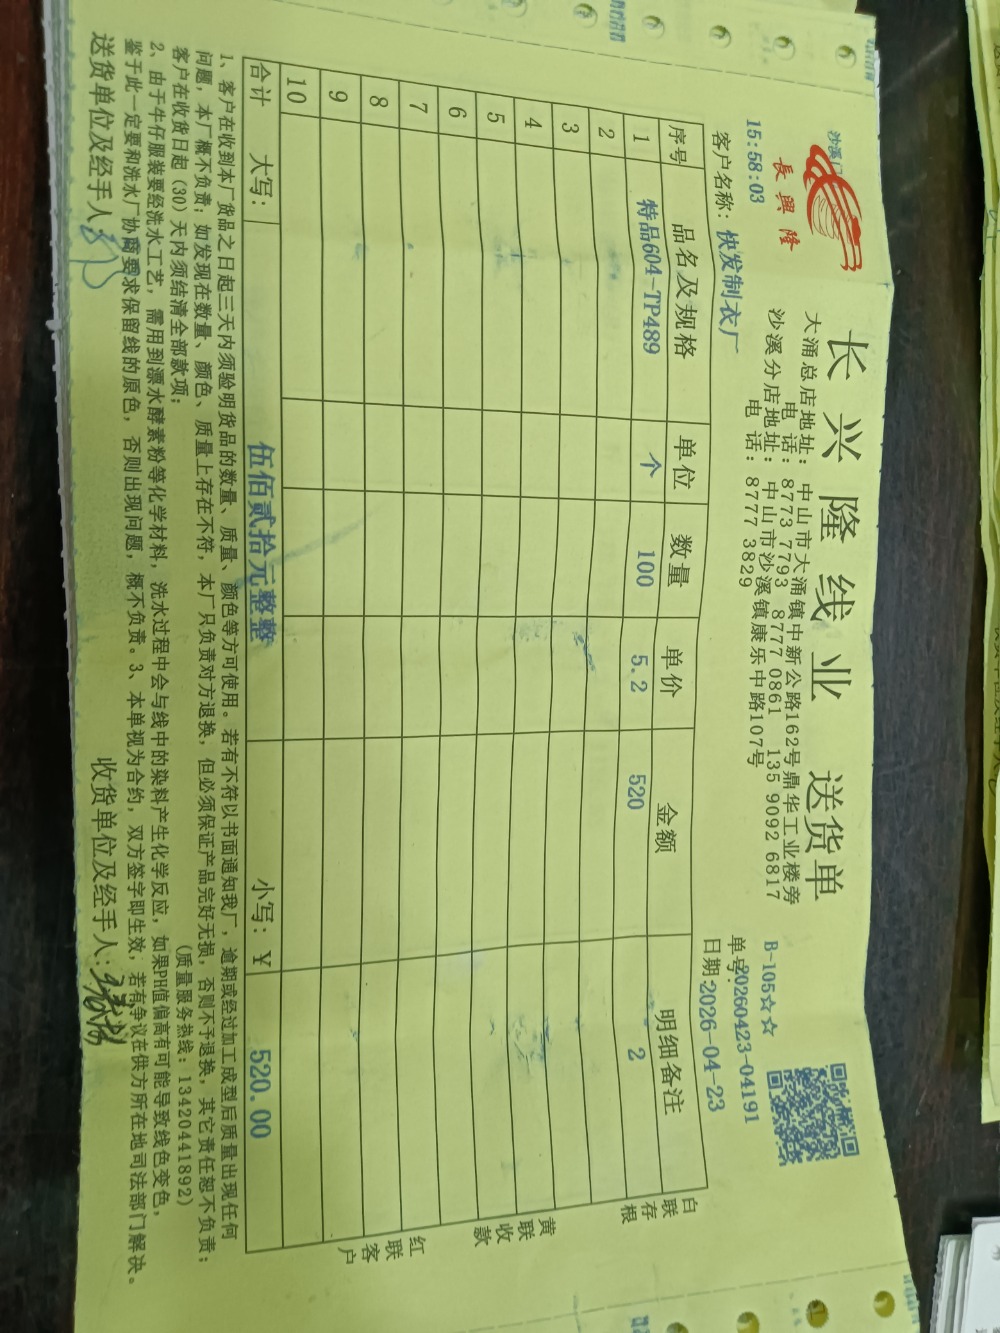 沙溪门
長興隆
长兴隆线业 送货单
大涌总店地址：中山市大涌镇中新公路162号鼎华工业楼旁
电话：8773 7793 8777 0861 135 9092 6817
沙溪分店地址：中山市沙溪镇康乐中路107号
电话：8777 3829
B-105☆☆
15:58:03
单号:20260423-04191
客户名称：快发制衣厂
日期:2026-04-23
序号 品名及规格 单位 数量 单价 金额 明细备注
1 特品604-TP489 个 100 5.2 520 2
2
3
4
5
6
7
8
9
10
合计 大写：伍佰贰拾元整整 小写：￥ 520.00
白联存根
黄联收款
红联客户
1、客户在收到本厂货品之日起三天内须验明货品的数量、质量、颜色等方可使用。若有不符以书面通知我厂，逾期或经过加工成型后质量出现任何
问题，本厂概不负责；如发现在数量、颜色、质量上存在不符，本厂只负责对方退换，但必须保证产品完好无损，否则不予退换，其它责任恕不负责；
客户在收货日起（30）天内须结清全部款项； (质量服务热线：13420441892)
2、由于牛仔服装要经洗水工艺，需用到漂水酵素粉等化学材料，洗水过程中会与线中的染料产生化学反应，如果PH值偏高有可能导致线色变色，
鉴于此一定要和洗水厂协商要求保留线的原色，否则出现问题，概不负责。3、本单视为合约，双方签字即生效，若有争议在供方所在地司法部门解决。
送货单位及经手人： 收货单位及经手人：